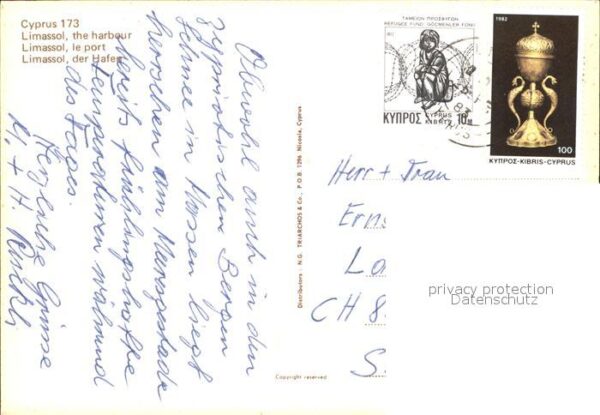 Cyprus 173
Limassol, the harbour
Limassol, le port
Limassol, der Hafen
Obwohl auch in den
zypriotischen Bergen
Schnee in Massen liegt
herrschen am Meeresgestade
bereits frühlingshafte
Temperaturen während
des Tages.
Herzliche Grüsse
H. + H.
Distributors : N.G. TRIARCHOS & Co., P.O.B. 1296 Nicosia, Cyprus
Copyright reserved
ΤΑΜΕΙΟΝ ΠΡΟΣΦΥΓΩΝ
REFUGEE FUND GÖÇMENLER FONU
ΚΥΠΡΟΣ
CYPRUS
KIBRIS
10
1982
100
ΚΥΠΡΟΣ-KIBRIS-CYPRUS
Herr + Frau
Ern
La
CH 8
S
privacy protection
Datenschutz